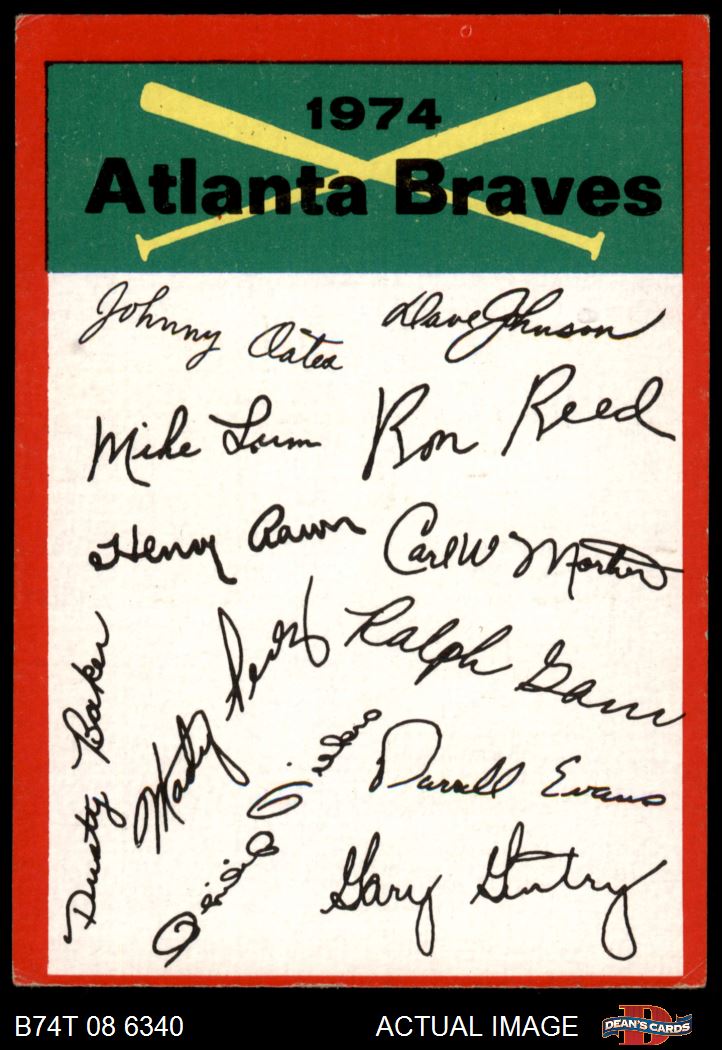 1974
Atlanta Braves
Johnny Oates
Dave Johnson
Mike Lum
Ron Reed
Henry Aaron
Carl W Morton
Dusty Baker
Marty Perez
Ralph Garr
Darrell Evans
Gary Gentry
B74T 08 6340
ACTUAL IMAGE
D
DEAN'S CARDS